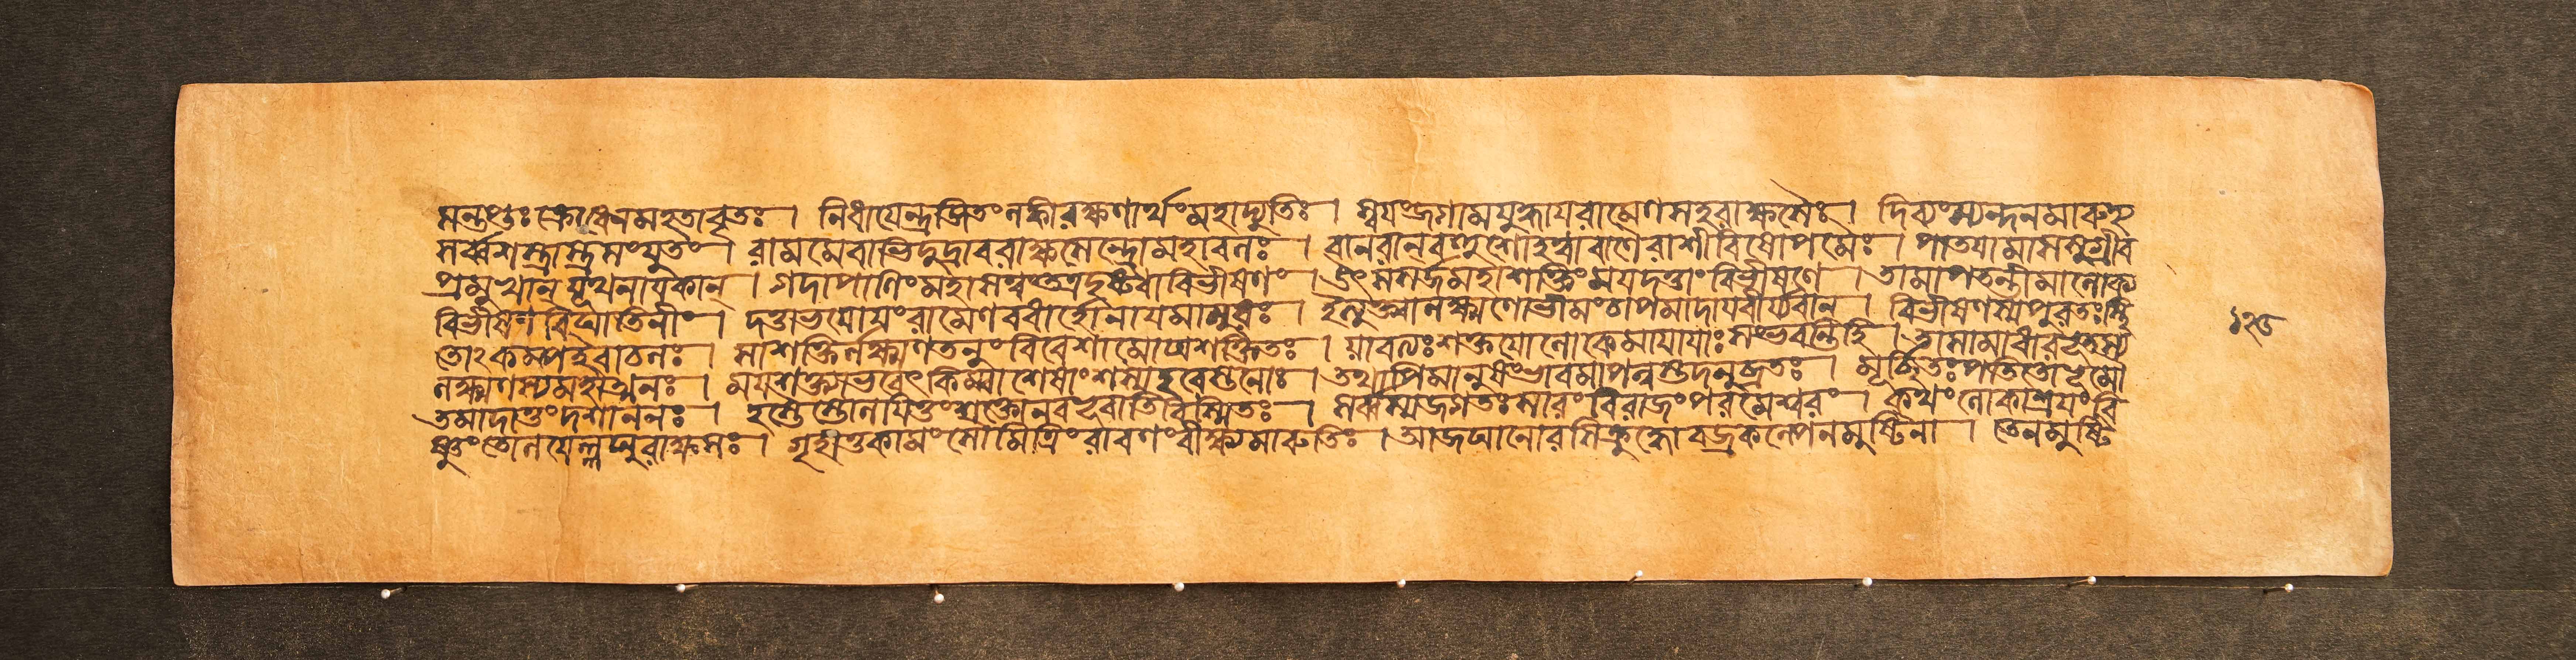 সন্তপ্তঃ ক্রোধেনমহতাবৃতঃ । নিধায়েন্দ্রজিতং লঙ্কারক্ষণার্থংমহাদ্যুতিঃ । স্বয়ংজগামযুদ্ধায়রামেণসহরাক্ষসৈঃ । দিব্যংস্যন্দনমারুহ্য
সর্ব্বশস্ত্রাস্ত্রসংযুতং । রামমেবাভিদুদ্রাবরাক্ষসেন্দ্রোমহাবলঃ । বানরান্বহুশোহত্বাবাণৈরাশীবিষোপমৈঃ । পাতয়ামাসসুগ্রীব
প্রমুখান্ যূথনায়কান্ । গদাপাণিংমহাসত্ত্বংতত্রদৃষ্ট্বাবিভীষণং । উৎসসর্জমহাশক্তিংময়দত্তাংবিভীষণে । তামাপতন্তীমালোক্য
বিভীষণবিঘাতিনীং । দত্তাভয়োয়ংরামেণবধার্হোনায়মাসুরঃ । ইত্যুক্ত্বালক্ষ্মণোভীমংচাপমাদায়বীর্য্যবান্ । বিভীষণস্যপুরতঃস্থি
তোঽকম্পইবাচলঃ । সাশক্তির্লক্ষ্মণতনুংবিবেশামোঘশক্তিতঃ । যাবত্যঃশক্তয়োলোকেমায়ায়াঃসংভবন্তিহি । তাসামাধারভূতস্য
লক্ষ্মণস্যমহাত্মনঃ । ময়শক্ত্যাভবেৎকিম্বাশেষাংশস্যহরেস্তনোঃ । তথাপিমানুষংভাবমাপন্নস্তদনুব্রতঃ । মূর্চ্ছিতঃপতিতোভূমৌ
তমাদাতুংদশাননঃ । হস্তৈস্তোলয়িতুংশক্তোনবভূবাতিবিস্মিতঃ । সর্ব্বস্যজগতঃসারংবিরাজংপরমেশ্বরং । কথংলোকাশ্রয়ংবি
ষ্ণুংতোলয়েল্লঘুরাক্ষসঃ । গৃহীতুকামংসৌমিত্রিংরাবণংবীক্ষ্যমারুতিঃ । আজঘানোরসিক্রুদ্ধোবজ্রকল্পেনমুষ্টিনা । তেনমুষ্টি